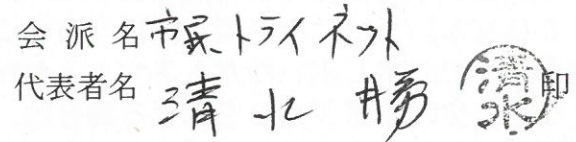 会派名 市民トライネット
代表者名 清水 勝 清水 印